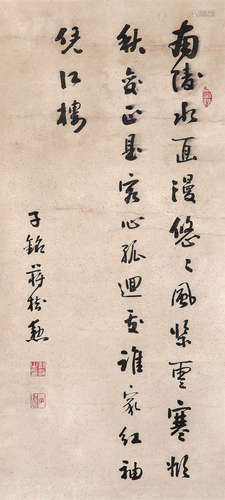 南陵水面漫悠〻風緊雲寒欲
秋正是客心孤迥處誰家紅袖
凭江樓
子銘蔣